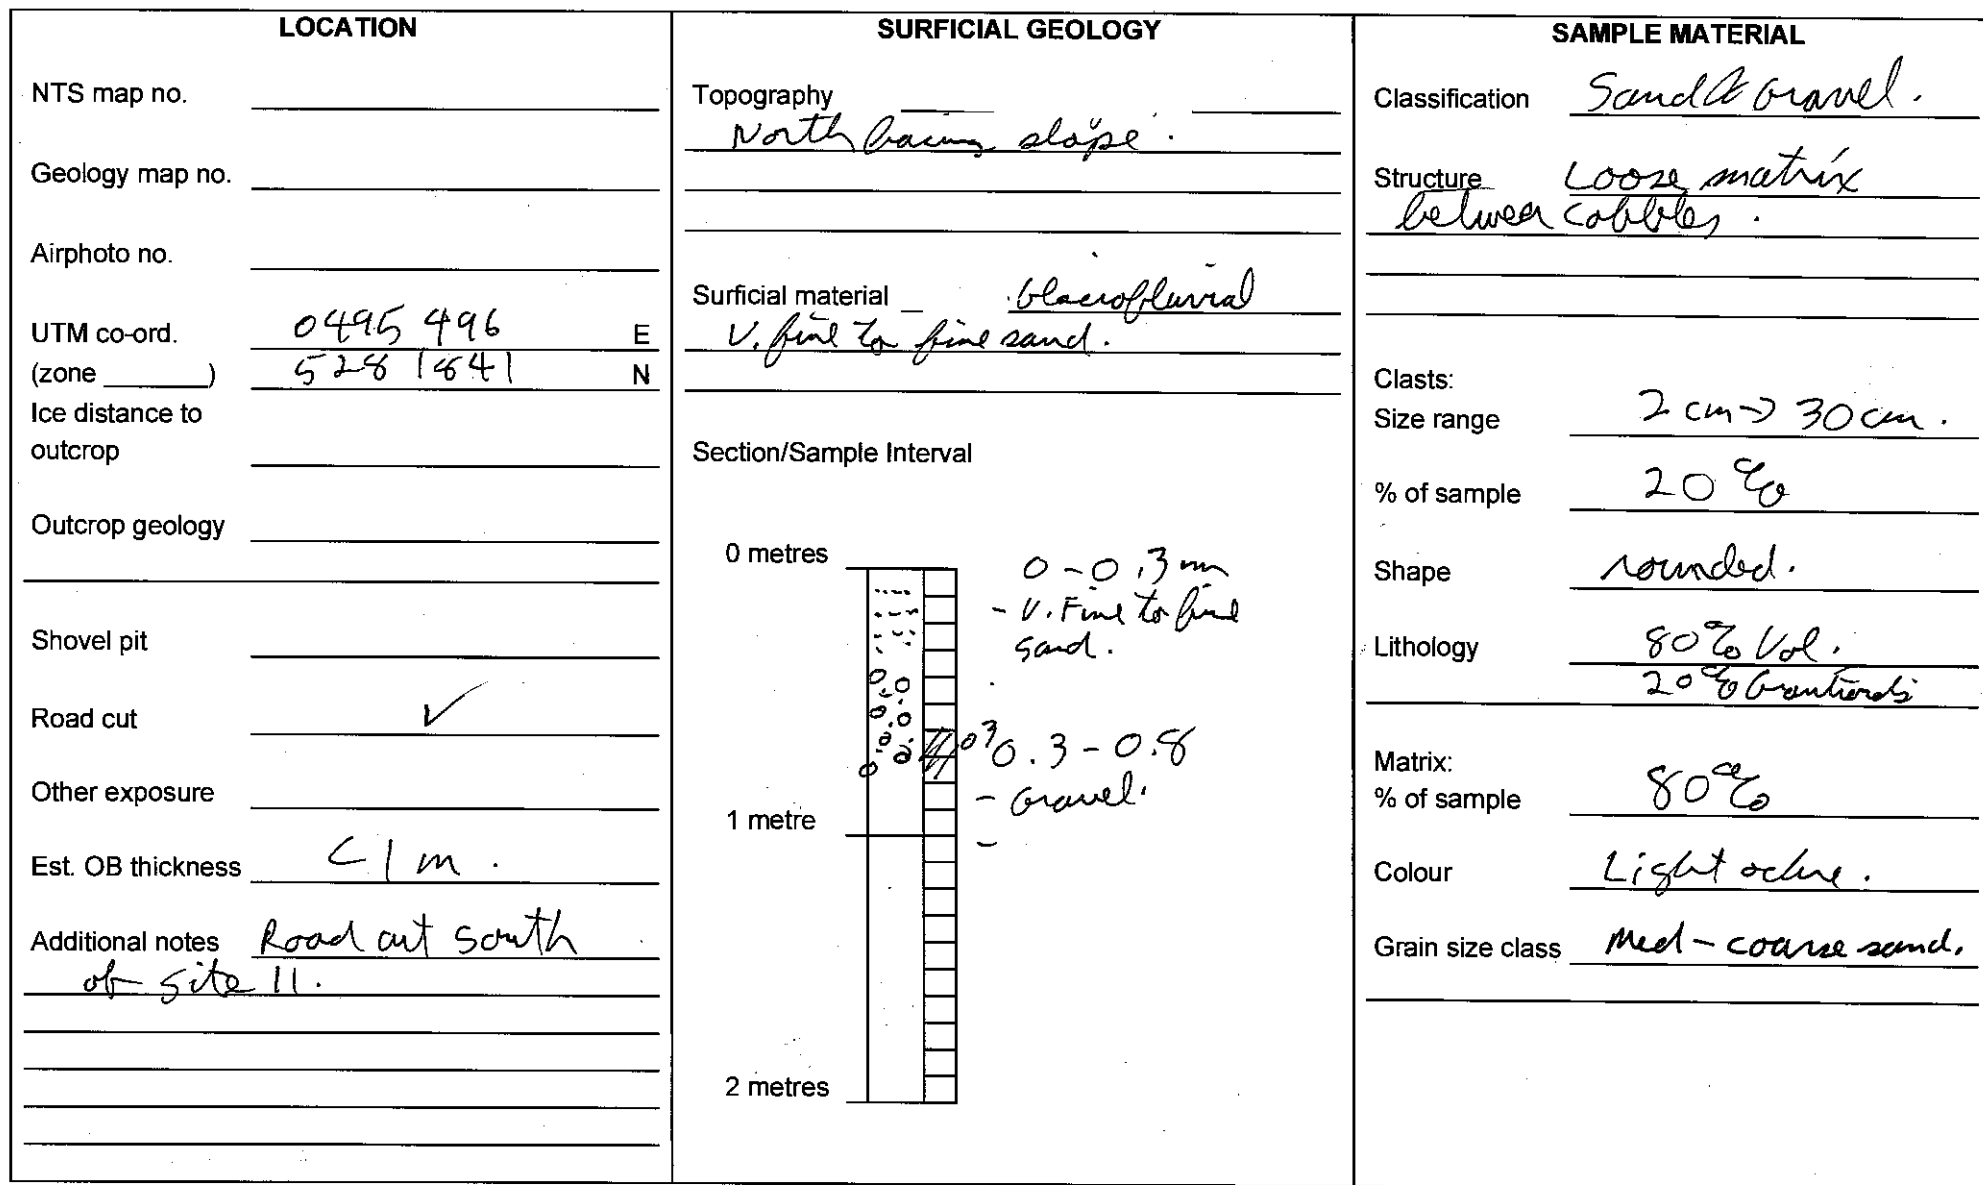 LOCATION
NTS map no.
Geology map no.
Airphoto no.
UTM co-ord. 0495 496 E
(zone ) 5281841 N
Ice distance to
outcrop
Outcrop geology
Shovel pit
Road cut ✓
Other exposure
Est. OB thickness <1 m.
Additional notes Road cut South
of site 11.
SURFICIAL GEOLOGY
Topography
North facing slope.
Surficial material Glaciofluvial
V. fine to fine sand.
Section/Sample Interval
0 metres
0-0.3 m
- V. Fine to fine
sand.
0.3-0.8
- Gravel.
1 metre
-
2 metres
SAMPLE MATERIAL
Classification Sand & Gravel.
Structure Loose matrix
between cobbles.
Clasts:
Size range 2 cm → 30 cm.
% of sample 20%
Shape rounded.
Lithology 80% Vol.
20% Granitoids
Matrix:
% of sample 80%
Colour Light ochre.
Grain size class Med-coarse sand.